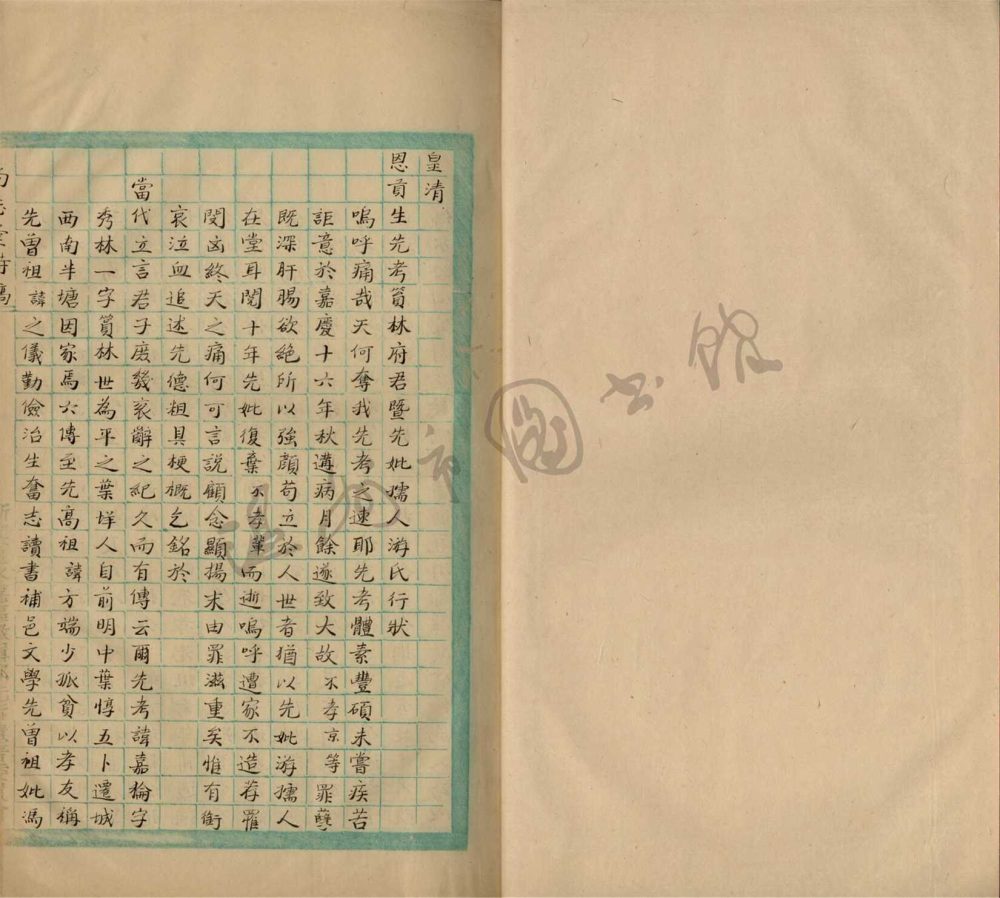 皇清
恩貢生先考筼林府君暨先妣孺人游氏行狀
嗚呼痛哉天何奪我先考之速耶先考體素豐碩未嘗疾苦
詎意於嘉慶十六年秋遘病月餘遂致大故不孝京等罪孽
既深肝腸欲絕所以強顔苟立於人世者猶以先妣游孺人
在堂耳閱十年先妣復棄不孝輩而逝嗚呼遭家不造荐罹
閔凶終天之痛何可言說顧念顯揚末由罪滋重矣惟有銜
哀泣血追述先德粗具梗概乞銘於
當代立言君子庶幾哀辭之紀久而有傳云爾先考諱嘉棆字
秀林一字筼林世為平之葉垟人自前明中葉惇五卜遷城
西南半塘因家焉六傳至先高祖諱方端少孤貧以孝友稱
先曾祖諱之儀勤儉治生奮志讀書補邑文學先曾祖妣馮